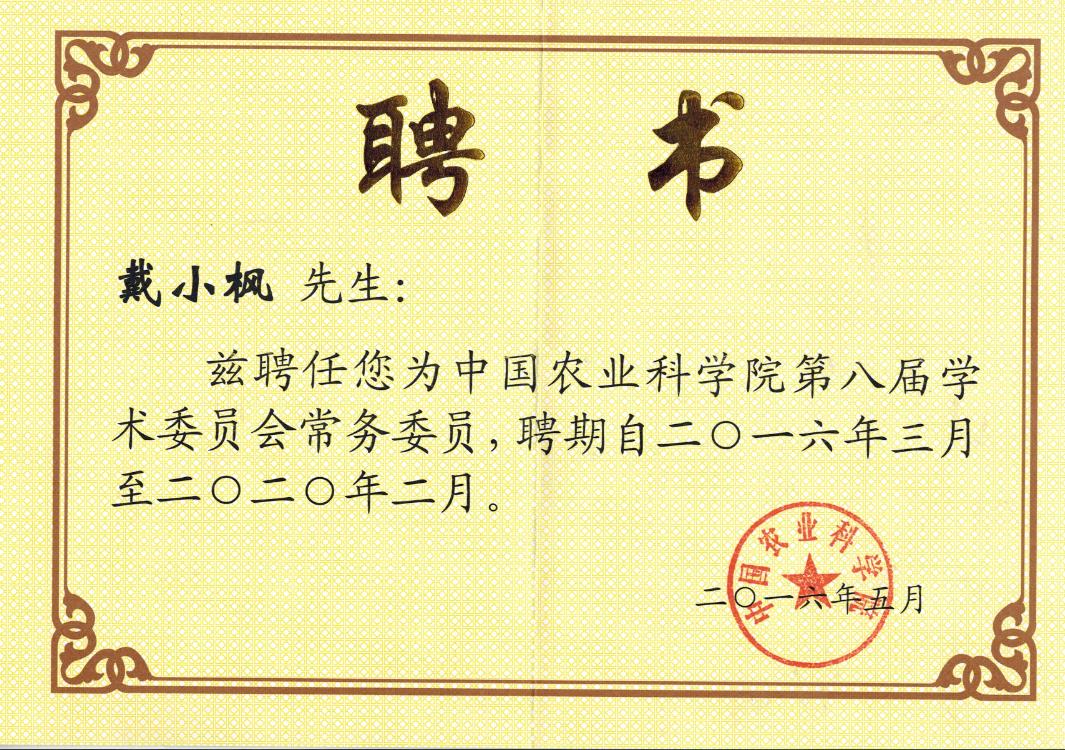 聘书
戴小枫 先生：
兹聘任您为中国农业科学院第八届学
术委员会常务委员，聘期自二〇一六年三月
至二〇二〇年二月。
中国农业科学院
二〇一六年五月